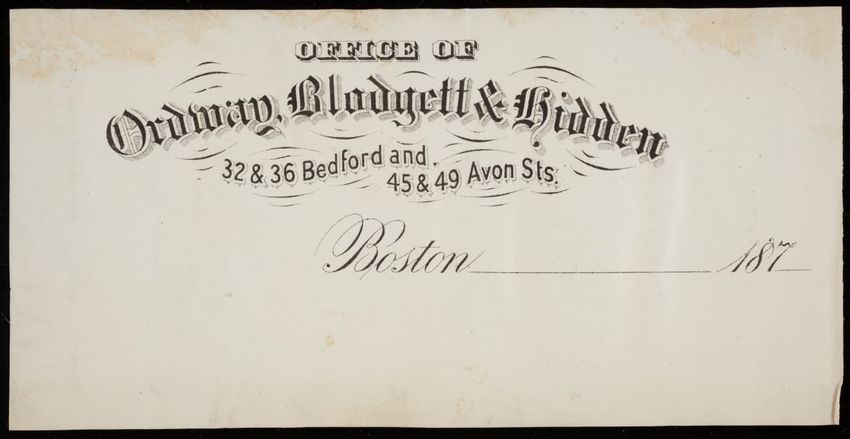 OFFICE OF
Ordway, Blodgett & Hidden
32 & 36 Bedford and
45 & 49 Avon Sts.
Boston 187